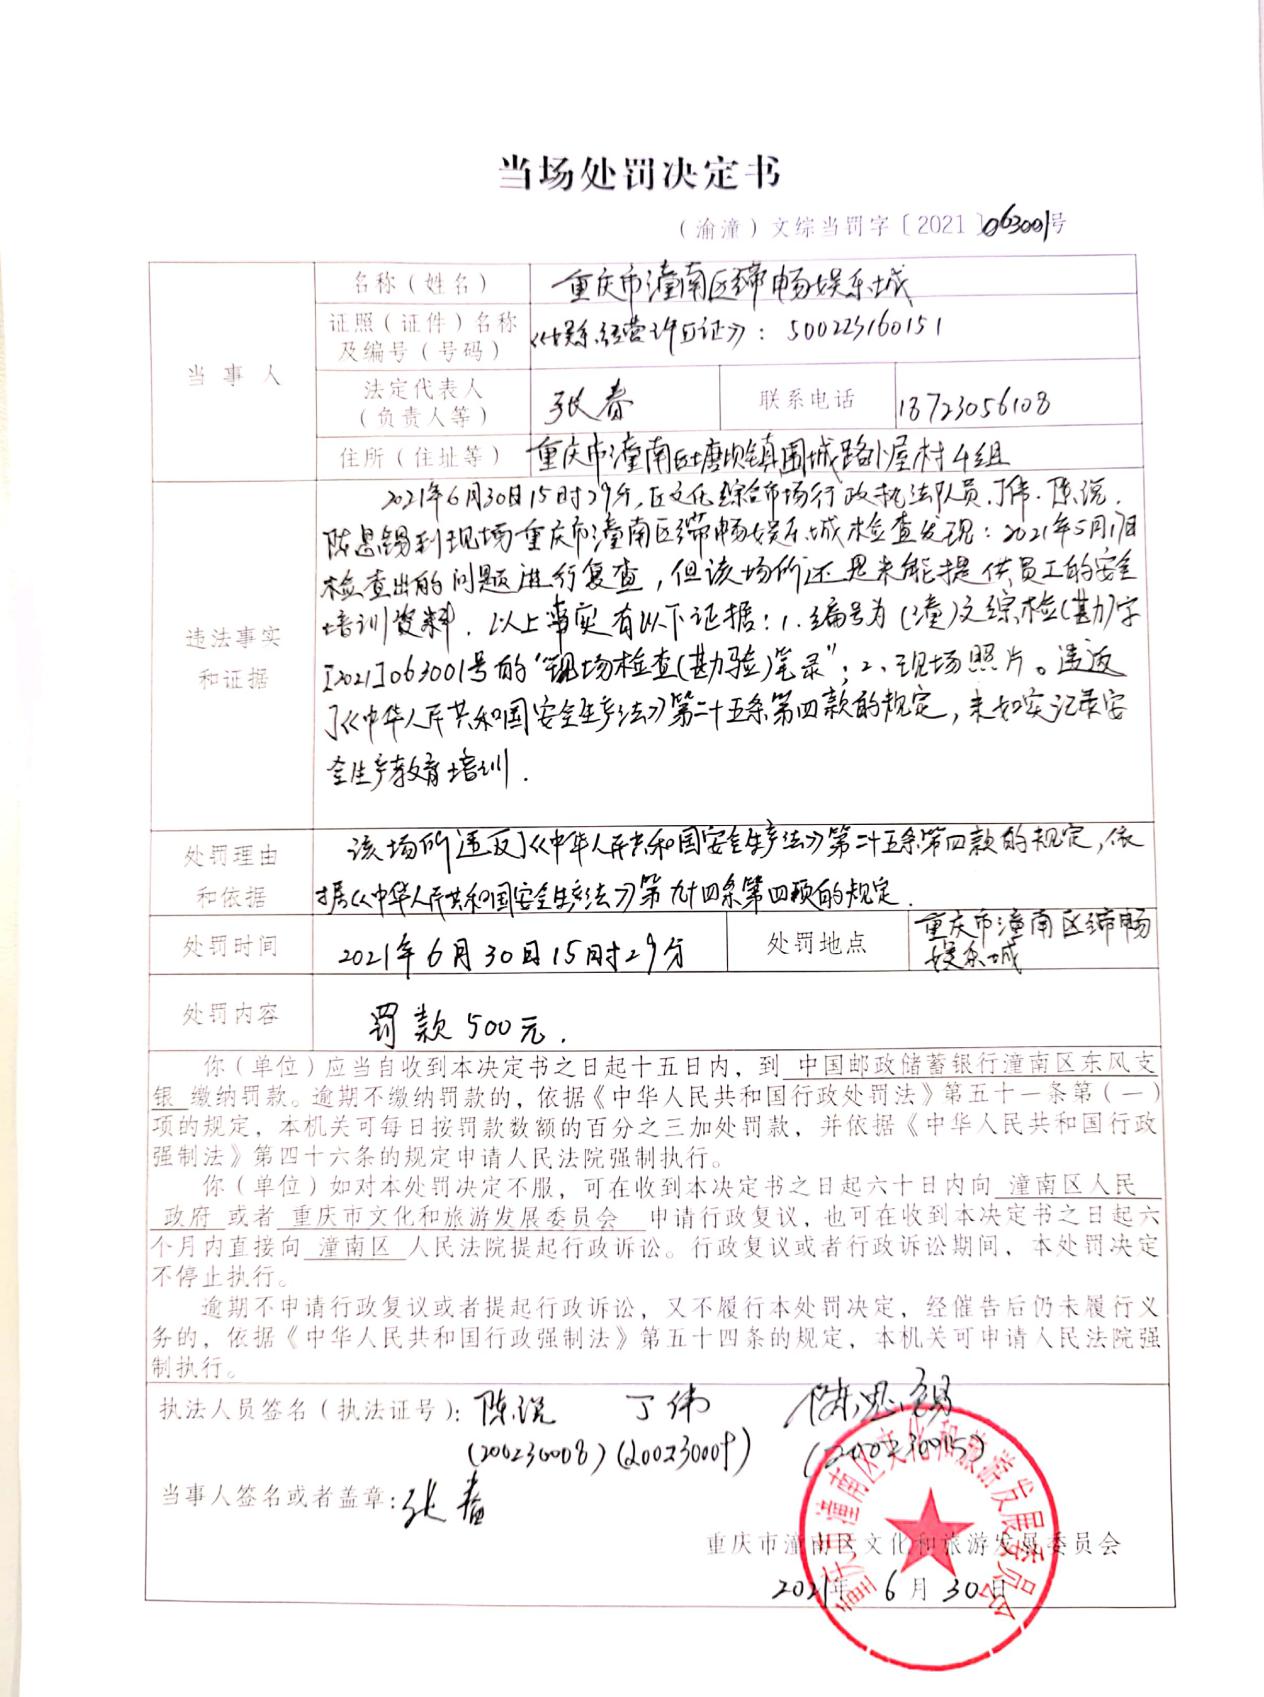 当场处罚决定书
（渝潼）文综当罚字〔2021〕063001号
当事人
名称（姓名）
重庆市潼南区缔畅娱乐城
证照（证件）名称
及编号（号码）
《娱乐经营许可证》：500223160151
法定代表人
（负责人等）
张春
联系电话
18723056108
住所（住址等）
重庆市潼南区塘坝镇围城路小屋村4组
违法事实
和证据
2021年6月30日15时29分，区文化综合市场行政执法队员丁伟、陈说、
陈思锡到现场重庆市潼南区缔畅娱乐城检查发现：2021年5月17日
检查出的问题进行复查，但该场所还是未能提供员工的安全
培训资料。以上事实有以下证据：1.编号为（潼）文综检（勘）字
[2021]063001号的“现场检查（勘验）笔录”；2、现场照片。违返
了《中华人民共和国安全生产法》第二十五条第四款的规定，未如实记录安
全生产教育培训．
处罚理由
和依据
该场所违反了《中华人民共和国安全生产法》第二十五条第四款的规定，依
据《中华人民共和国安全生产法》第九十四条第四项的规定．
处罚时间
2021年6月30日15时29分
处罚地点
重庆市潼南区缔畅
娱乐城
处罚内容
罚款500元．
你（单位）应当自收到本决定书之日起十五日内，到 中国邮政储蓄银行潼南区东风支
银 缴纳罚款。逾期不缴纳罚款的，依据《中华人民共和国行政处罚法》第五十一条第（一）
项的规定，本机关可每日按罚款数额的百分之三加处罚款，并依据《中华人民共和国行政
强制法》第四十六条的规定申请人民法院强制执行。
你（单位）如对本处罚决定不服，可在收到本决定书之日起六十日内向 潼南区人民
政府 或者 重庆市文化和旅游发展委员会 申请行政复议，也可在收到本决定书之日起六
个月内直接向 潼南区 人民法院提起行政诉讼。行政复议或者行政诉讼期间，本处罚决定
不停止执行。
逾期不申请行政复议或者提起行政诉讼，又不履行本处罚决定，经催告后仍未履行义
务的，依据《中华人民共和国行政强制法》第五十四条的规定，本机关可申请人民法院强
制执行。
执法人员签名（执法证号）：陈说 丁伟 陈思锡
（200230008）（200230009）（200230015）
当事人签名或者盖章：张春
重庆市潼南区文化和旅游发展委员会
2021年6月30日
重庆市潼南区文化和旅游发展委员会